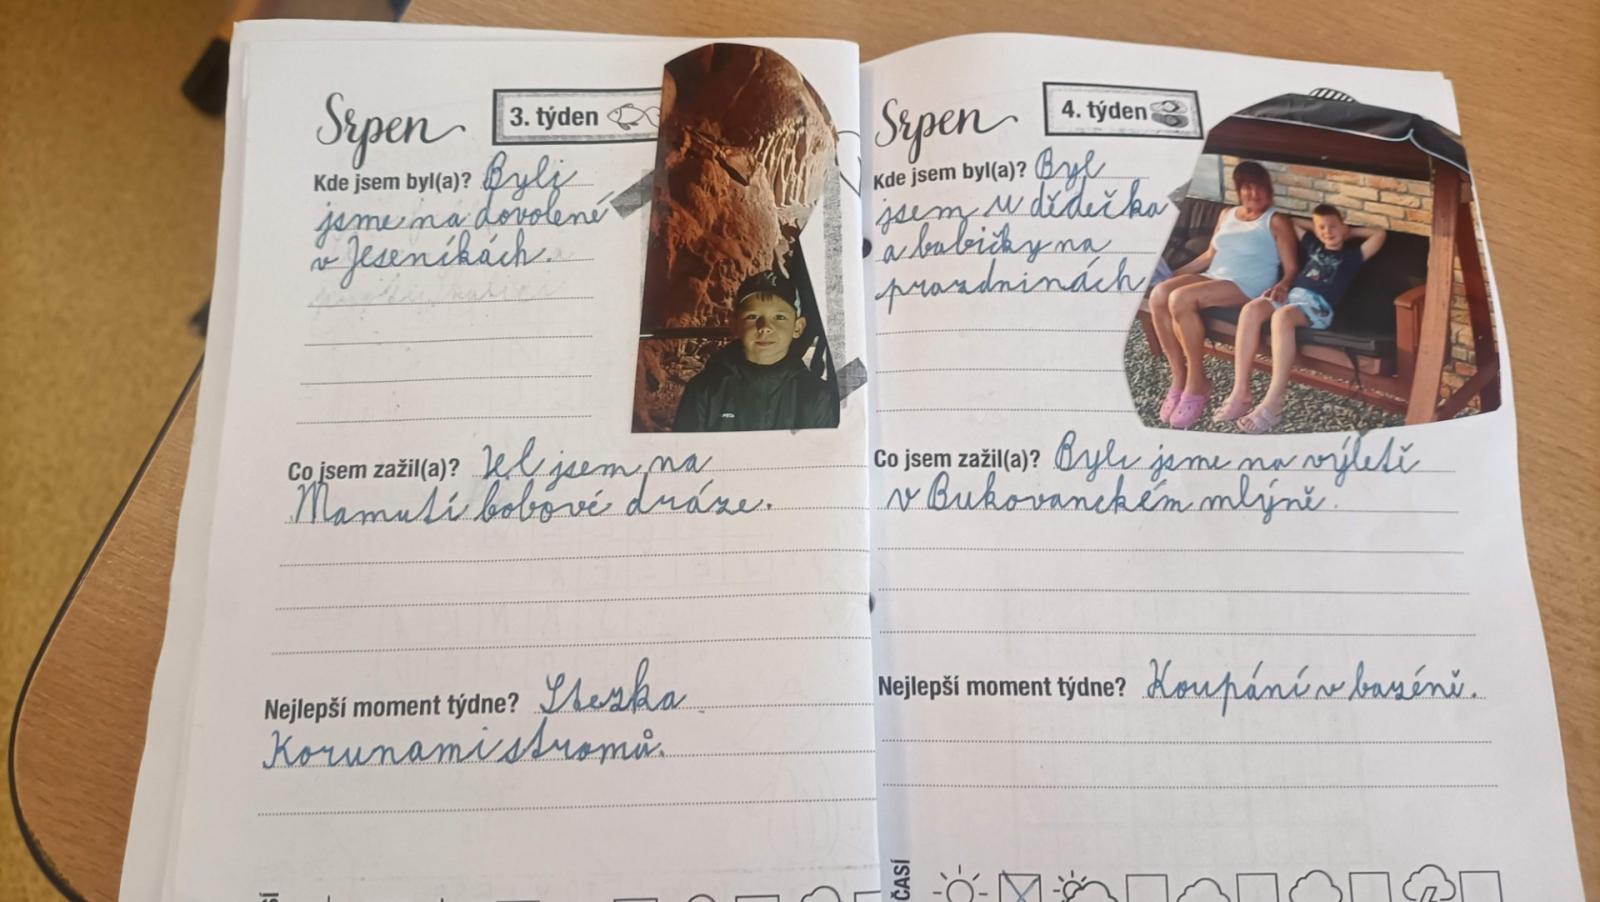 Srpen
3. týden
Kde jsem byl(a)? Byli
jsme na dovolené
v Jeseníkách.
Co jsem zažil(a)? Jel jsem na
Mamutí bobové dráze.
Nejlepší moment týdne? Stezka
Korunami stromů.
Srpen
4. týden
Kde jsem byl(a)? Byl
jsem u dědečka
a babičky na
prazdninách
Co jsem zažil(a)? Byli jsme na výletě
v Bukovanckém mlýně.
Nejlepší moment týdne? Koupání v bazéně.
ČASÍ